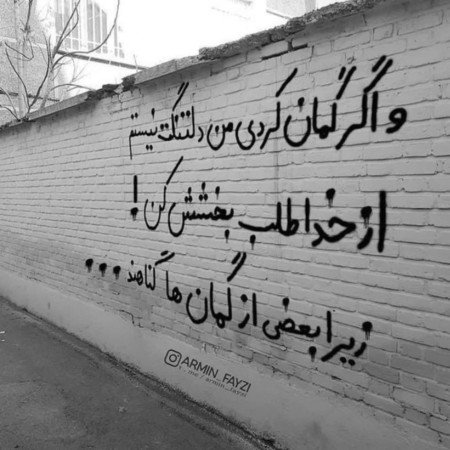 و اگر گمان کردی من دلتنگت نیستم
از خدا طلب بخشش کن !
زیرا بعضی از گمان ها گناهند ...
ARMIN_FAYZI
t.me/armin_fayzi